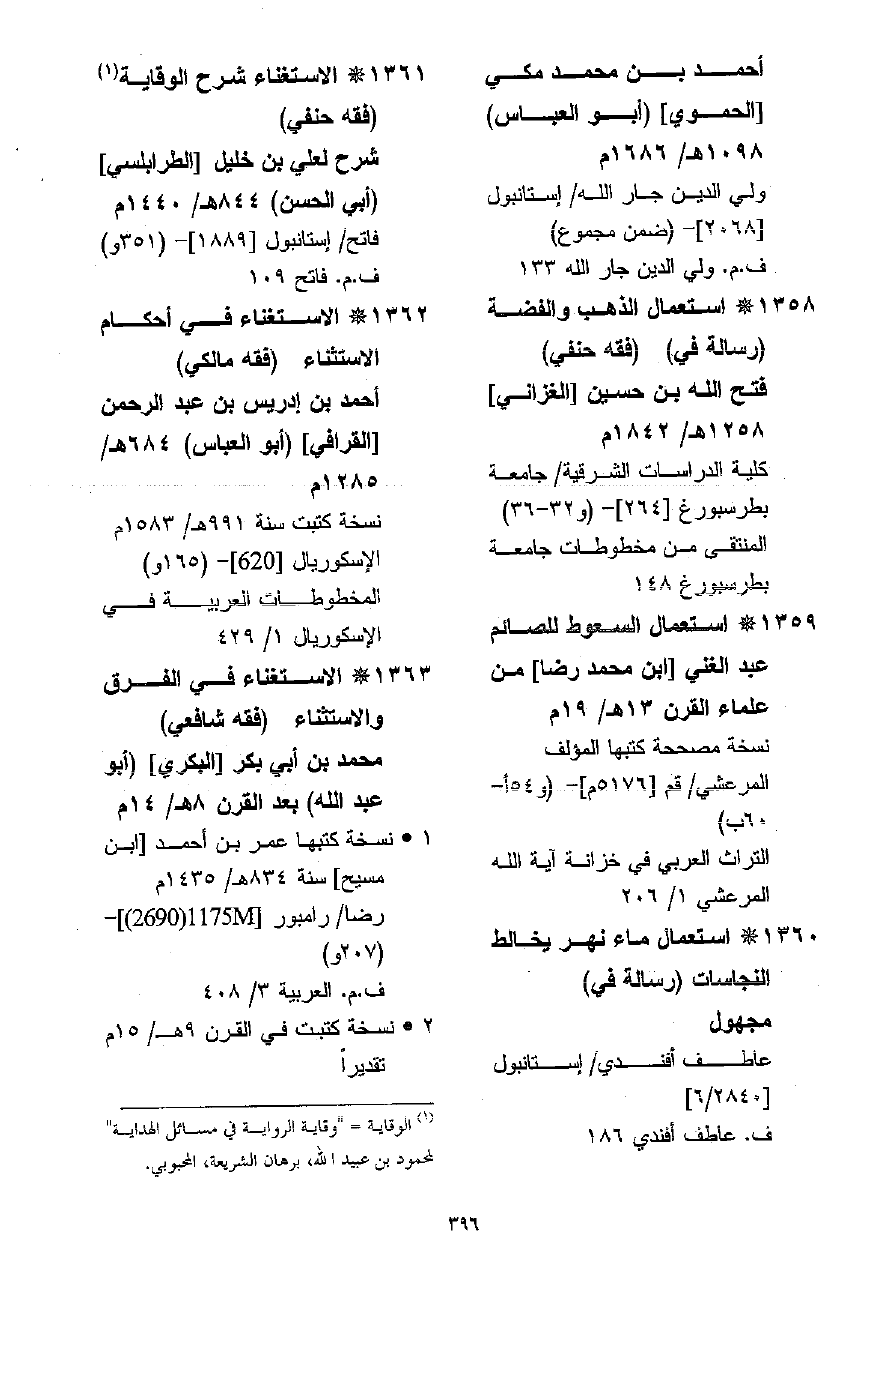 أحمد بن محمد مكي
[الحموي] (أبو العباس)
١٠٩٨هـ/ ١٦٨٦م
ولي الدين جار الله/ إستانبول
[٢٠٦٨]- (ضمن مجموع)
ف.م. ولي الدين جار الله ١٣٣
١٣٥٨ ❊ استعمال الذهب والفضة
(رسالة في) (فقه حنفي)
فتح الله بن حسين [الغزاني]
١٢٥٨هـ/ ١٨٤٢م
كلية الدراسات الشرقية/ جامعة
بطرسبورغ [٢٦٤]- (و٣٢-٣٦)
المنتقى من مخطوطات جامعة
بطرسبورغ ١٤٨
١٣٥٩ ❊ استعمال السعوط للصائم
عبد الغني [ابن محمد رضا] من
علماء القرن ١٣هـ/ ١٩م
نسخة مصححة كتبها المؤلف
المرعشي/ قم [٥١٧٦م]- (و٥٤أ-
٦٠ب)
التراث العربي في خزانة آية الله
المرعشي ١/ ٢٠٦
١٣٦٠ ❊ استعمال ماء نهر يخالط
النجاسات (رسالة في)
مجهول
عاطف أفندي/ إستانبول
[٦/٢٨٤٠]
ف. عاطف أفندي ١٨٦
١٣٦١ ❊ الاستغناء شرح الوقاية(١)
(فقه حنفي)
شرح لعلي بن خليل [الطرابلسي]
(أبي الحسن) ٨٤٤هـ/ ١٤٤٠م
فاتح/ إستانبول [١٨٨٩]- (٣٥١و)
ف.م. فاتح ١٠٩
١٣٦٢ ❊ الاستغناء في أحكام
الاستثناء (فقه مالكي)
أحمد بن إدريس بن عبد الرحمن
[القرافي] (أبو العباس) ٦٨٤هـ/
١٢٨٥م
نسخة كتبت سنة ٩٩١هـ/ ١٥٨٣م
الإسكوريال [620]- (١٦٥و)
المخطوطات العربية في
الإسكوريال ١/ ٤٢٩
١٣٦٣ ❊ الاستغناء في الفرق
والاستثناء (فقه شافعي)
محمد بن أبي بكر [البكري] (أبو
عبد الله) بعد القرن ٨هـ/ ١٤م
١ • نسخة كتبها عمر بن أحمد [ابن
مسيح] سنة ٨٣٤هـ/ ١٤٣٥م
رضا/ رامبور [1175M(2690)]-
(٢٠٧و)
ف.م. العربية ٣/ ٤٠٨
٢ • نسخة كتبت في القرن ٩هـ/ ١٥م
تقديراً
(١) الوقاية = "وقاية الرواية في مسائل الهداية"
لمحمود بن عبيد الله، برهان الشريعة، المحبوبي.
٣٩٦